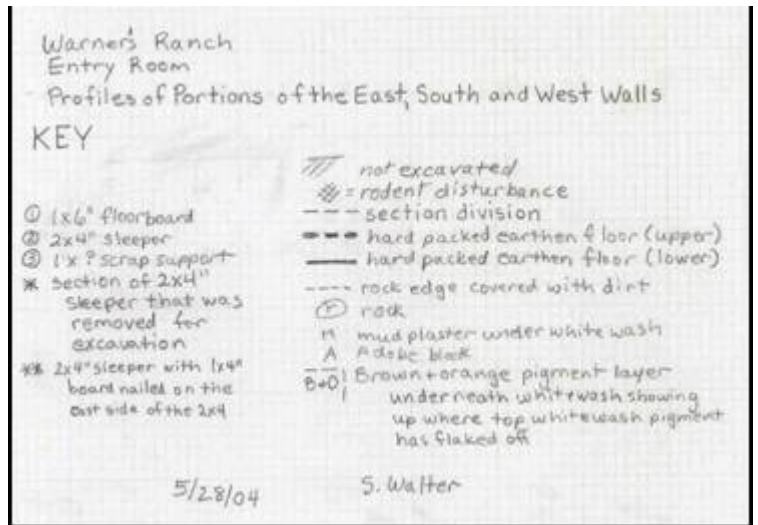 Warner's Ranch
Entry Room
Profiles of Portions of the East, South and West Walls
KEY
① 1x6" floorboard
② 2x4" sleeper
③ 1x? scrap support
* section of 2x4"
sleeper that was
removed for
excavation
** 2x4" sleeper with 1x4"
board nailed on the
east side of the 2x4
not excavated
= rodent disturbance
section division
hard packed earthen floor (upper)
hard packed earthen floor (lower)
rock edge covered with dirt
r rock
M mud plaster under white wash
A Adobe block
B+O Brown+orange pigment layer
underneath whitewash showing
up where top whitewash pigment
has flaked off
5/28/04
S. Walter